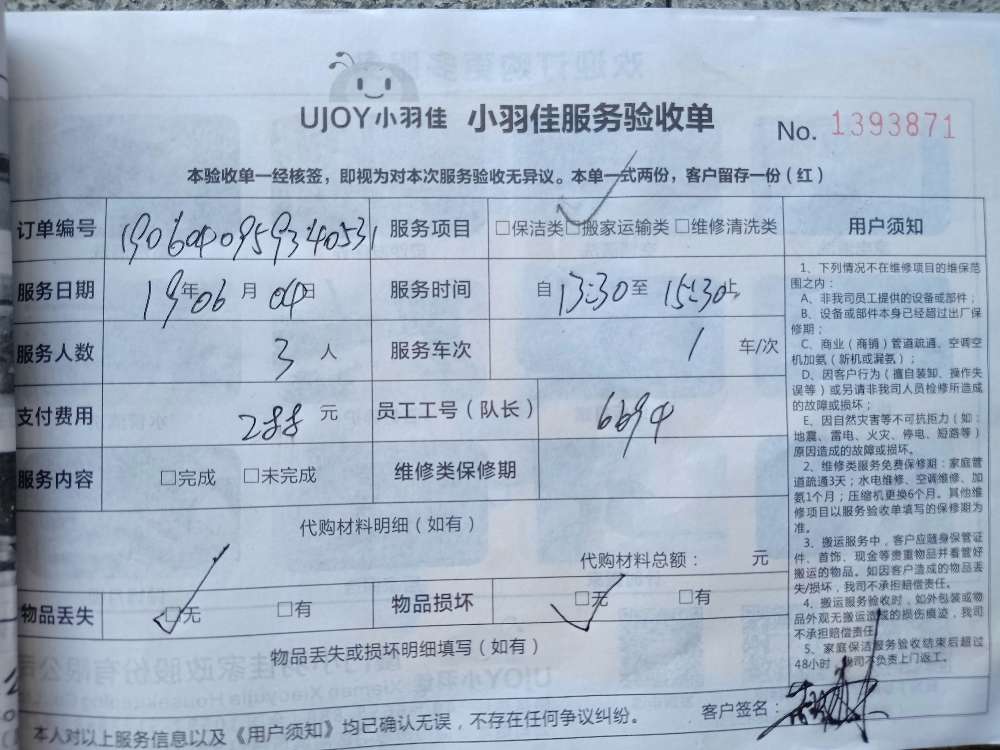 UJOY小羽佳 小羽佳服务验收单 No. 1393871
本验收单一经核签，即视为对本次服务验收无异议。本单一式两份，客户留存一份（红）
订单编号 190604095934053 服务项目 □保洁类 □搬家运输类 □维修清洗类
服务日期 19年06月04日 服务时间 自13:30至15:30止
服务人数 3人 服务车次 1车/次
支付费用 288元 员工工号（队长） 6694
服务内容 □完成 □未完成 维修类保修期
代购材料明细（如有）
代购材料总额： 元
物品丢失 □无 □有 物品损坏 □无 □有
物品丢失或损坏明细填写（如有）
本人对以上服务信息以及《用户须知》均已确认无误，不存在任何争议纠纷。 客户签名：
用户须知
1、下列情况不在维修项目的维保范
围之内：
A、非我司员工提供的设备或部件；
B、设备或部件本身已经超过出厂保
修期；
C、商业（商铺）管道疏通、空调空
机加氨（新机或漏氨）；
D、因客户行为（擅自装卸、操作失
误等）或另请非我司人员检修所造成
的故障或损坏；
E、因自然灾害等不可抗拒力（如：
地震、雷电、火灾、停电、短路等）
原因造成的故障或损坏。
2、维修类服务免费保修期：家庭管
道疏通3天；水电维修、空调维修、加
氨1个月；压缩机更换6个月。其他维
修项目以服务验收单填写的保修期为
准。
3、搬运服务中，客户应随身保管证
件、首饰、现金等贵重物品并看管好
搬运的物品。如因客户造成的物品丢
失/损坏，我司不承担赔偿责任。
4、搬运服务验收时，如外包装或物
品外观无搬运造成的损伤痕迹，我司
不承担赔偿责任
5、家庭保洁服务验收结束后超过
48小时，我司不负责上门返工。